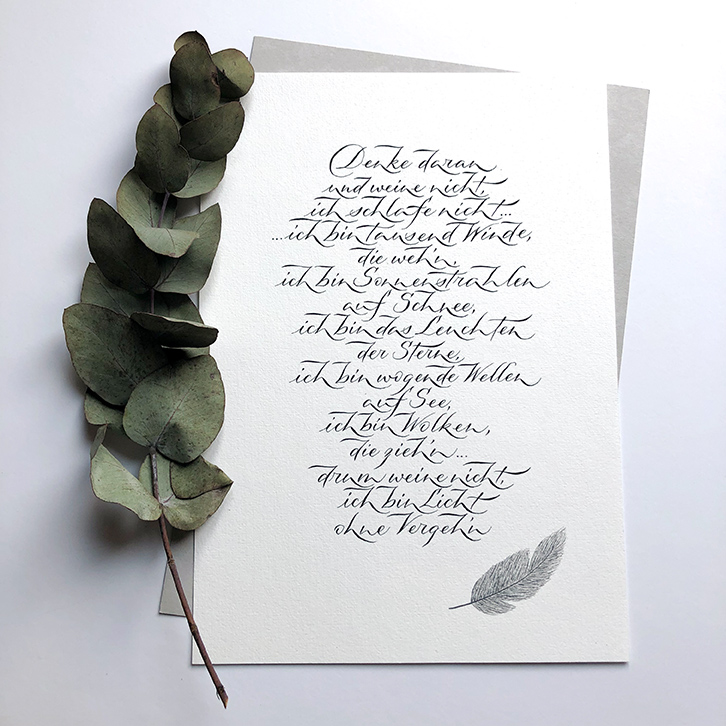 Denke daran
und weine nicht,
ich schlafe nicht...
...ich bin tausend Winde,
die weh'n,
ich bin Sonnenstrahlen
auf Schnee,
ich bin das Leuchten
der Sterne,
ich bin wogende Wellen
auf See,
ich bin Wolken,
die zieh'n...
drum weine nicht,
ich bin Licht
ohne Vergeh'n